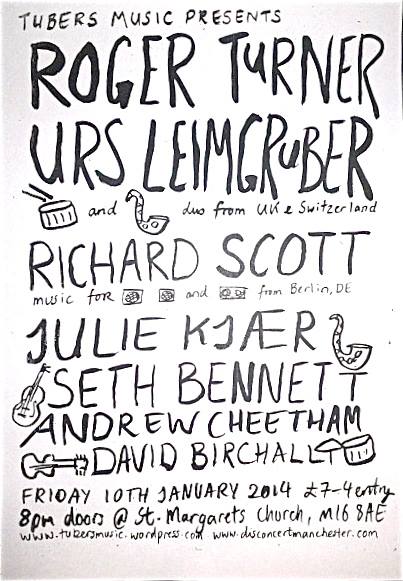 TUBERS MUSIC PRESENTS
ROGER TURNER
URS LEIMGRUBER
and duo from UK & Switzerland
RICHARD SCOTT
music for and from Berlin, DE
JULIE KJÆR
SETH BENNETT
ANDREW CHEETHAM
DAVID BIRCHALL
FRIDAY 10TH JANUARY 2014 £7-4 entry
8pm doors @ St. Margarets Church, M16 8AE
www.tubersmusic.wordpress.com www.disconcertmanchester.com